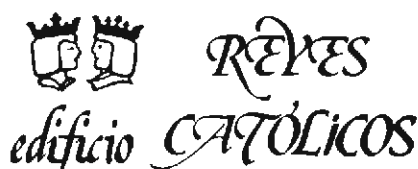 REYES
edificio CATÓLiCOS